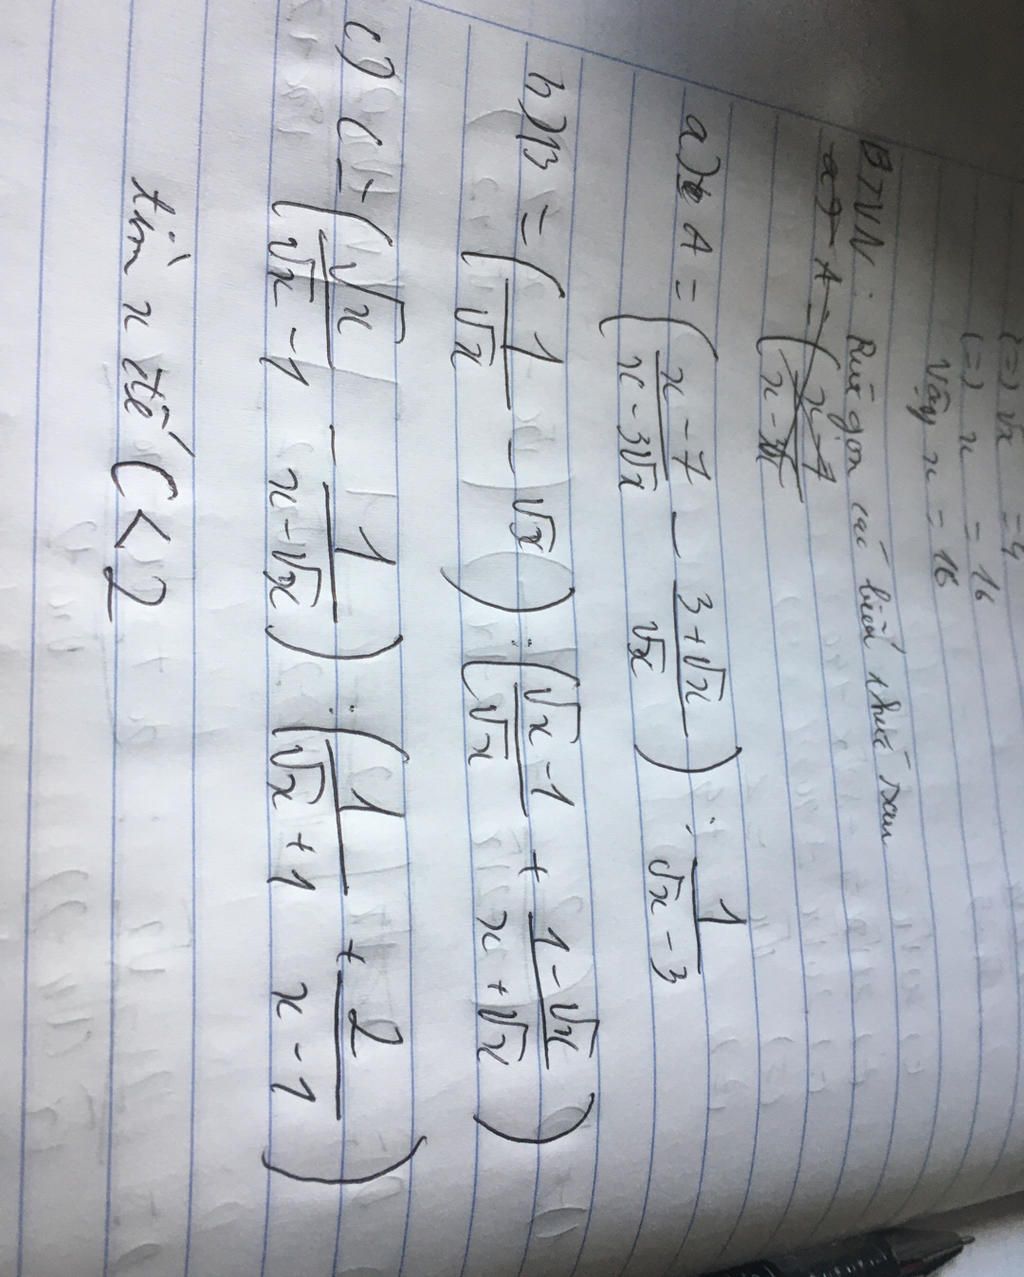 (=) √x = 4
(=) x = 16
Vậy x = 16
BTVN: Rút gọn các biểu thức sau
a) A = (x-7/x-3√x
a) A = (x-7/x-3√x - 3+√x/√x) : 1/√x-3
b) B = (1/√x - √x) : (√x-1/√x + 1-√x/x+√x)
c) C = (√x/√x-1 - 1/x-√x) : (1/√x+1 + 2/x-1)
tìm x để C < 2